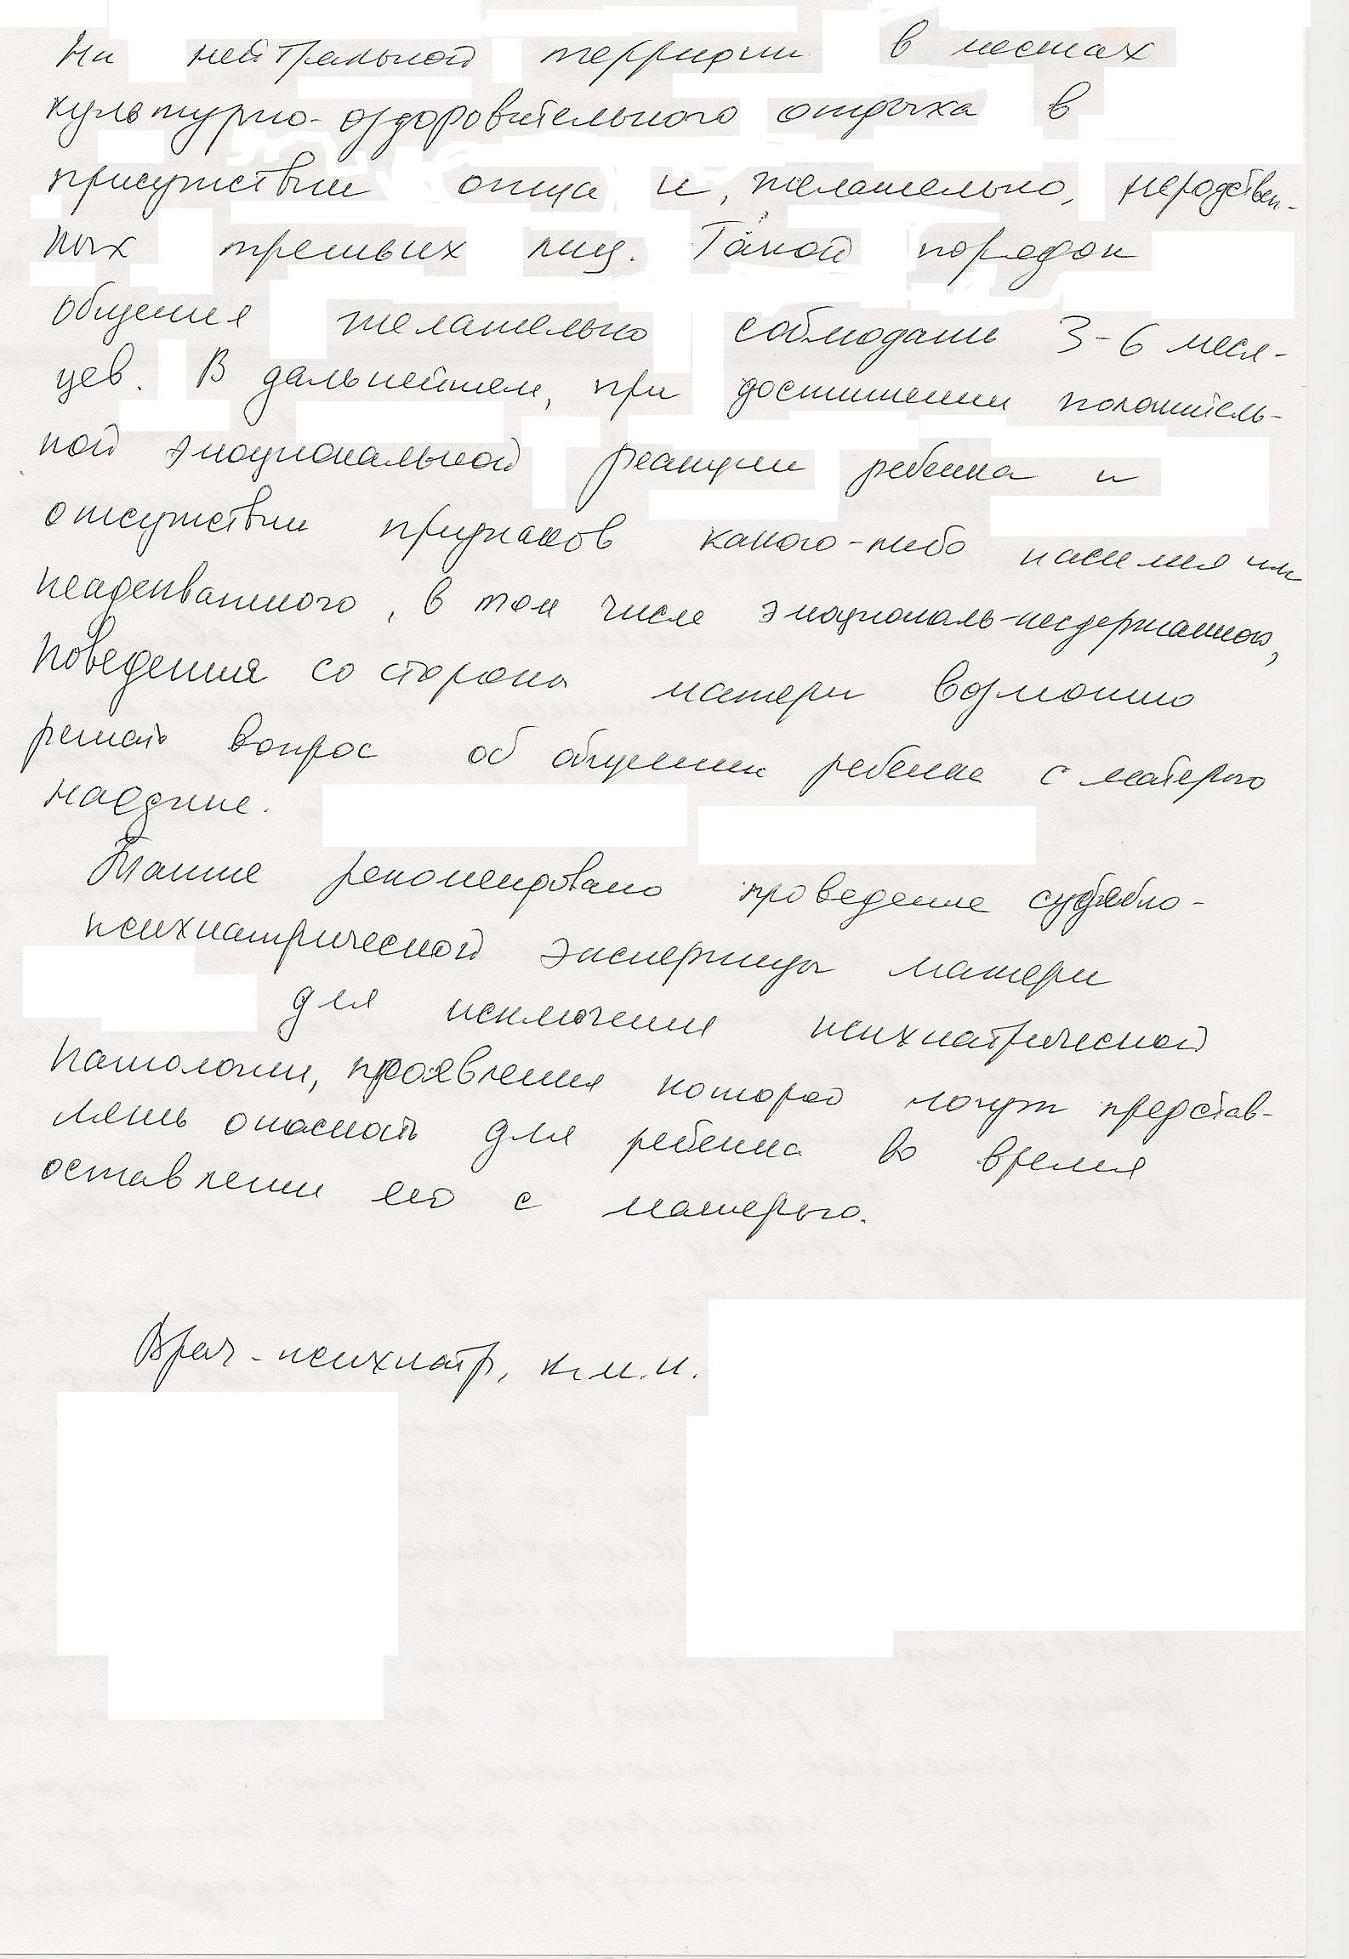 На нейтральной территории в местах
культурно-оздоровительного отдыха в
присутствии отца и, желательно, неродствен-
ных третьих лиц. Такой порядок
общения желательно соблюдать 3-6 меся-
цев. В дальнейшем, при достижении положитель-
ной эмоциональной реакции ребенка и
отсутствии признаков какого-либо насилия или
неадекватного, в том числе эмоциональ-несдержанного,
поведения со стороны матери возможно
решать вопрос об общении ребенка с матерью
наедине.
Также рекомендовано проведение судебно-
психиатрической экспертизы матери
для исключения психиатрической
патологии, проявления которой могут представ-
лять опасность для ребенка во время
оставлении его с матерью.
Врач-психиатр, к.м.н.